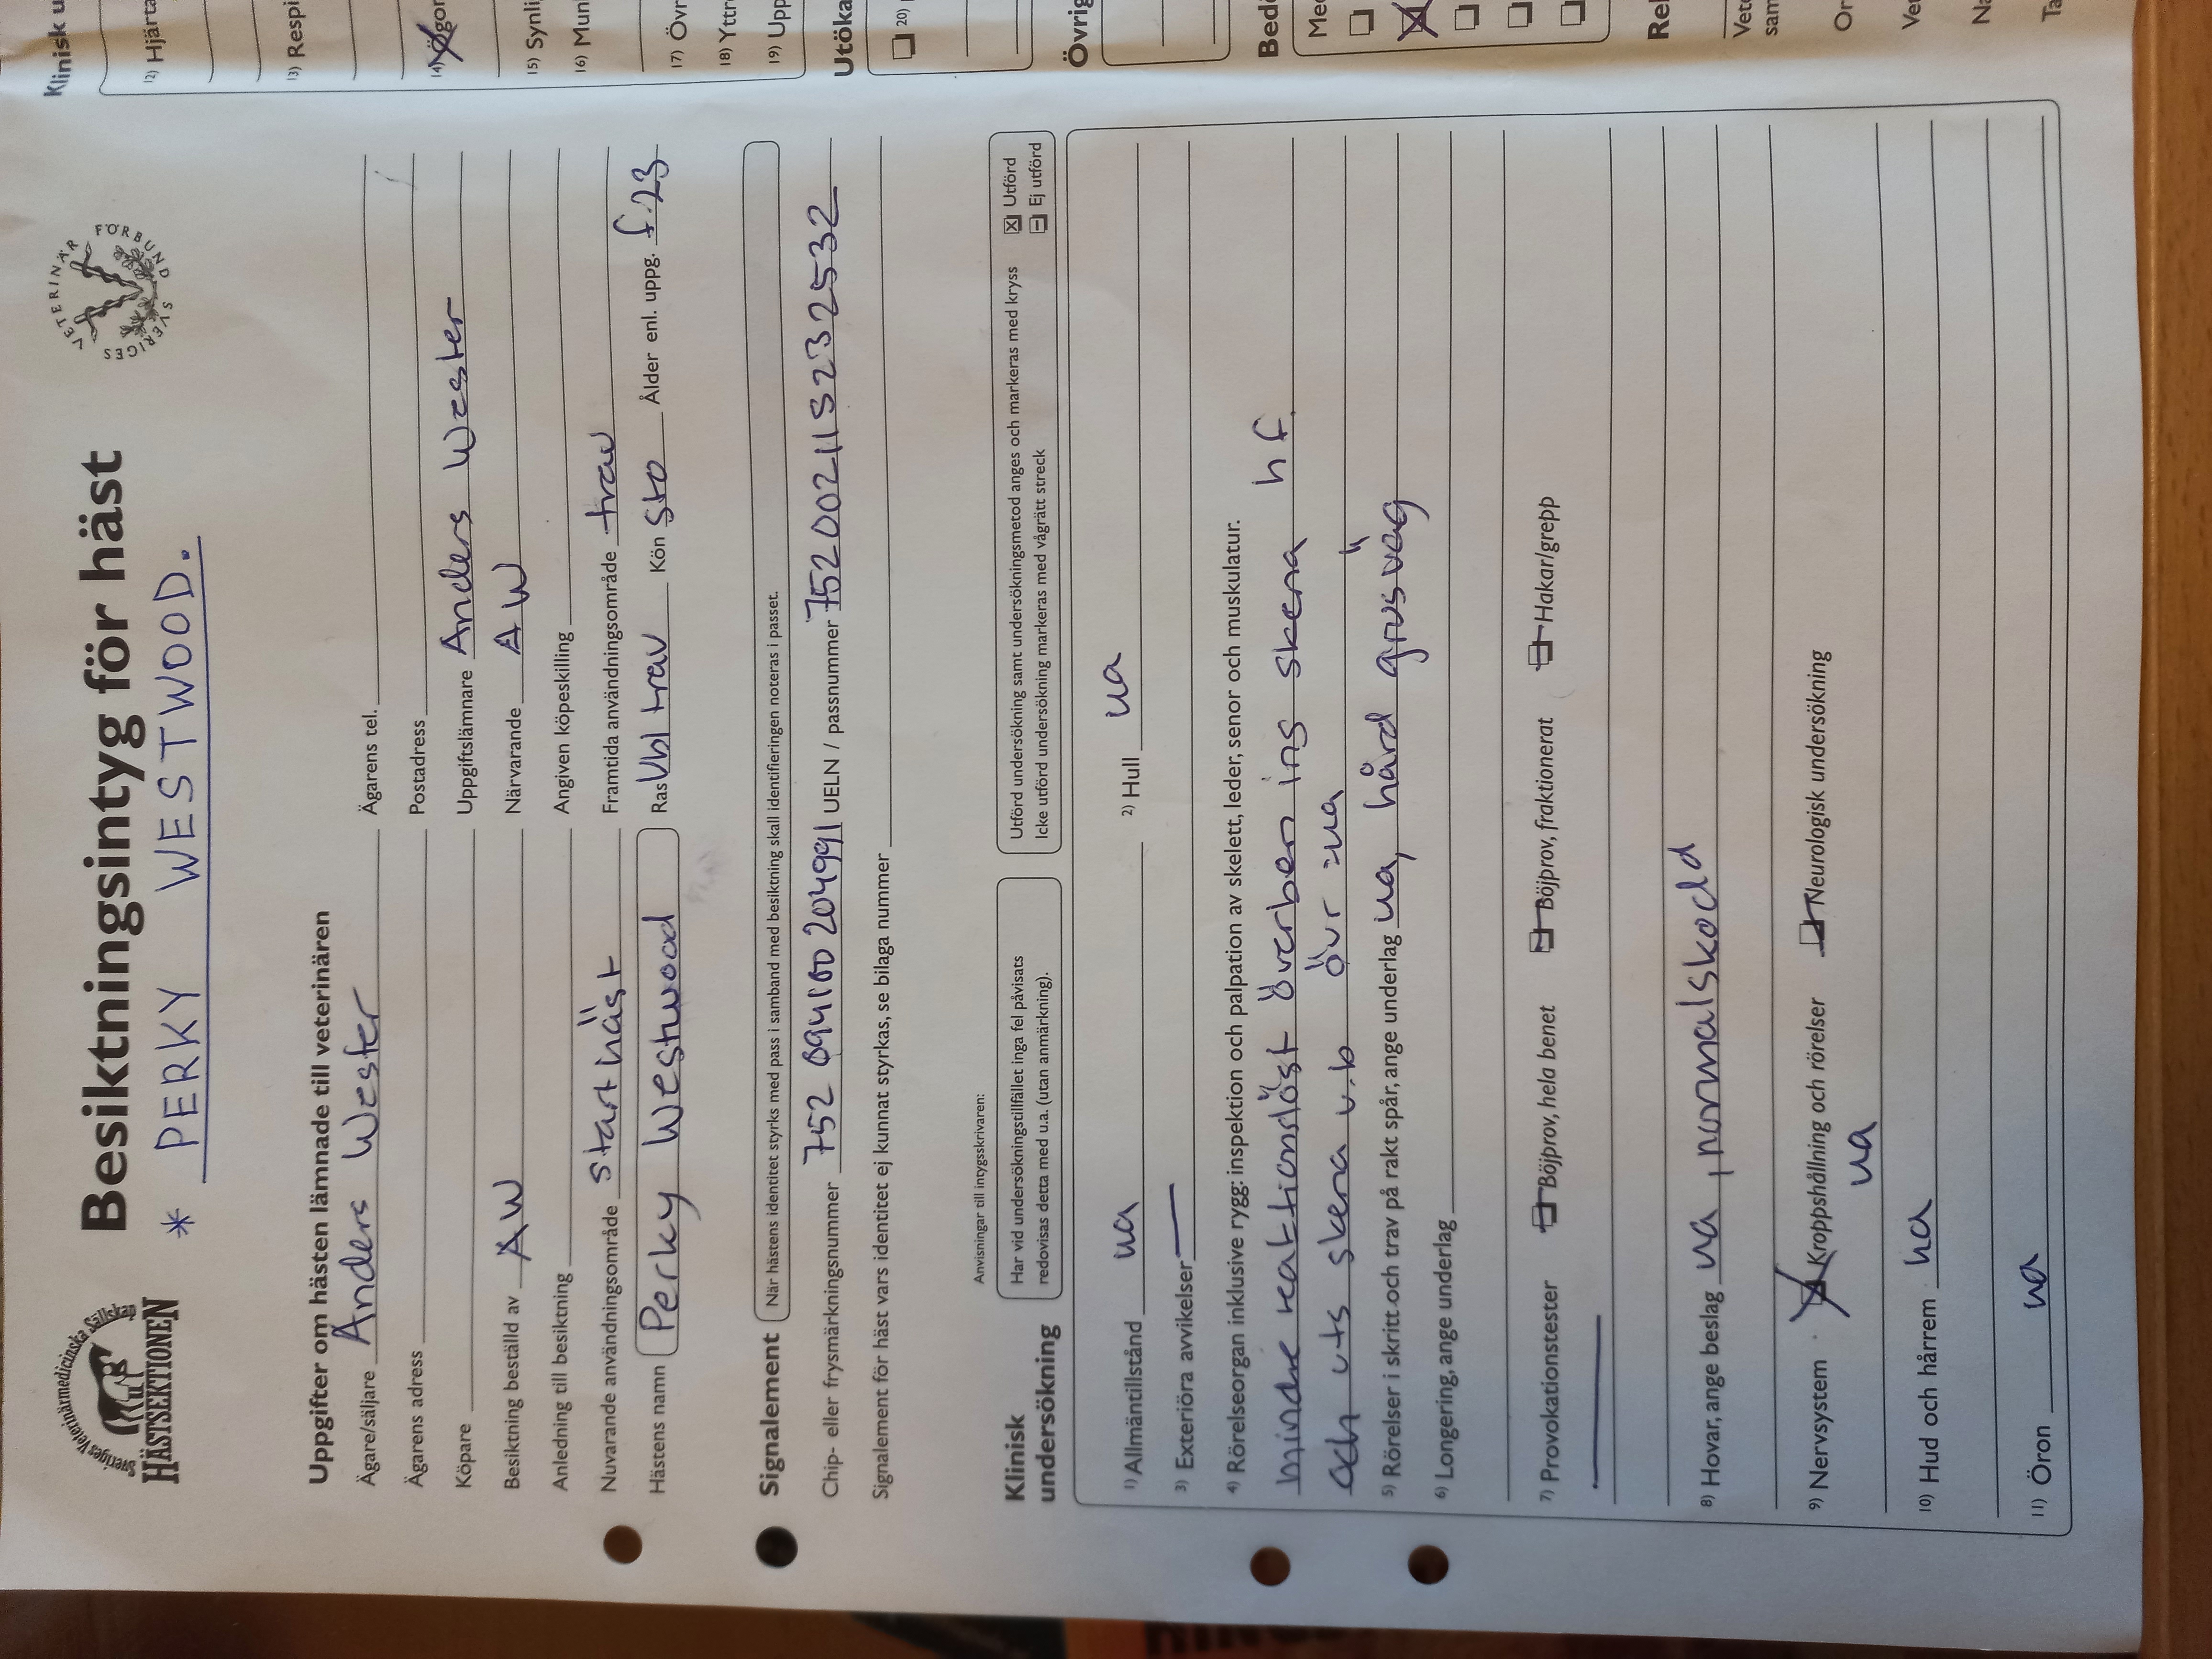 Sveriges Veterinärmedicinska Sällskap
HÄSTSEKTIONEN
Besiktningsintyg för häst
SVERIGES VETERINÄR FÖRBUND
* PERKY WESTWOOD.
Uppgifter om hästen lämnade till veterinären
Ägare/säljare Anders Wester Ägarens tel.
Ägarens adress Postadress
Köpare Uppgiftslämnare Anders Wester
Besiktning beställd av AW Närvarande AW
Anledning till besiktning Angiven köpeskilling
Nuvarande användningsområde starthäst Framtida användningsområde trav
Hästens namn Perky Westwood Ras Vbl trav Kön Sto Ålder enl. uppg. f-23
Signalement När hästens identitet styrks med pass i samband med besiktning skall identifieringen noteras i passet.
Chip- eller frysmärkningsnummer 752 094100204991 UELN / passnummer 75200211S232532
Signalement för häst vars identitet ej kunnat styrkas, se bilaga nummer
Anvisningar till intygsskrivaren:
Klinisk undersökning
Har vid undersökningstillfället inga fel påvisats
redovisas detta med u.a. (utan anmärkning).
Utförd undersökning samt undersökningsmetod anges och markeras med kryss
Icke utförd undersökning markeras med vågrätt streck
Utförd
Ej utförd
1) Allmäntillstånd ua 2) Hull ua
3) Exteriöra avvikelser —
4) Rörelseorgan inklusive rygg: inspektion och palpation av skelett, leder, senor och muskulatur.
mindre reaktionslöst överben ins skena hf
och uts skena v.b övr :ua
5) Rörelser i skritt och trav på rakt spår, ange underlag ua, hård grusväg
6) Longering, ange underlag
7) Provokationstester Böjprov, hela benet Böjprov, fraktionerat Hakar/grepp
8) Hovar, ange beslag ua, normalskodd
9) Nervsystem Kroppshållning och rörelser Neurologisk undersökning
ua
10) Hud och hårrem ua
11) Öron ua
Klinisk u
12) Hjärta
13) Respi
14) Ögon
15) Synli
16) Mun
17) Övr
18) Yttr
19) Upp
Utöka
20)
Övrig
Bedö
Med
Rel
Vete
sam
Or
Ver
Na
Ta